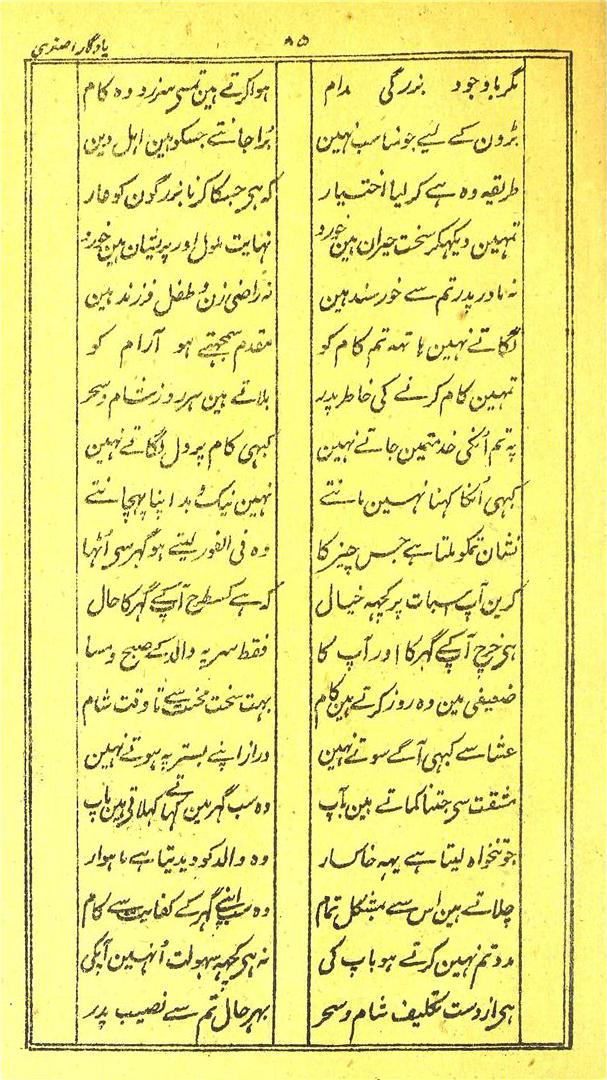 یادگار اصغری
۸۵
مگر باوجود بزرگی مدام ہوا کرتے ہین تمسی سرزد وہ کام
بڑون کے لیے جو مناسب نہین بُرا جانتے جسکو ہین اہل دین
طریقہ وہ ہے کر لیا اختیار کہ ہی جسکا کرنا بزرگون کو عار
تمہین دیکہکر سخت حیران ہین خورد نہایت ملول اور پریشان ہین خورد
نہ مادر پدر تم سے خورسند ہین نہ راضی زن و طفل فرزند ہین
لگاتے نہین ہاتہہ تم کام کو مقدم سمجہتے ہو آرام کو
تمہین کام کرنے کی خاطر پدر بلاتے ہین ہر روز شام و سحر
پہ تم اُنکی خدمتمین جاتے نہین کبہی کام پر دل لگاتے نہین
کبہی اُنکا کہنا نہین مانتے نہین نیک و بد اپنا پہچانتے
نشان تمکو ملتا ہے جس چیز کا وہ فی الفور لیتے ہو گہر سی اُٹہا
کرین آپ اسبات پر کچہہ خیال کہ ہے کسطرح آپکے گہر کا حال
ہی خرچ آپکے گہر کا اور آپ کا فقط سر پہ والد کے صبح و مسا
ضعیفی مین وہ روز کرتے ہین کام بہت سخت محنت سے تا وقت شام
عشا سے کبہی آگے سوتے نہین دراز اپنے بستر پہ ہوتے نہین
مشقت سی جتنا کماتے ہین آپ وہ سب گہر مین کہاتے کہلاتی ہین باپ
جو تنخواہ لیتا ہے یہہ خاکسار وہ والد کو دیدیتا ہے ماہوار
چلاتے ہین اس سے بمشکل تمام وہ سب اپنے گہر کے کفایت سے کام
مدد تم نہین کرتے ہو باپ کی نہ ہی کچہہ سہولت اُنہین آپکی
ہی از دست تکلیف شام و سحر بہر حال تم سے نصیب پدر